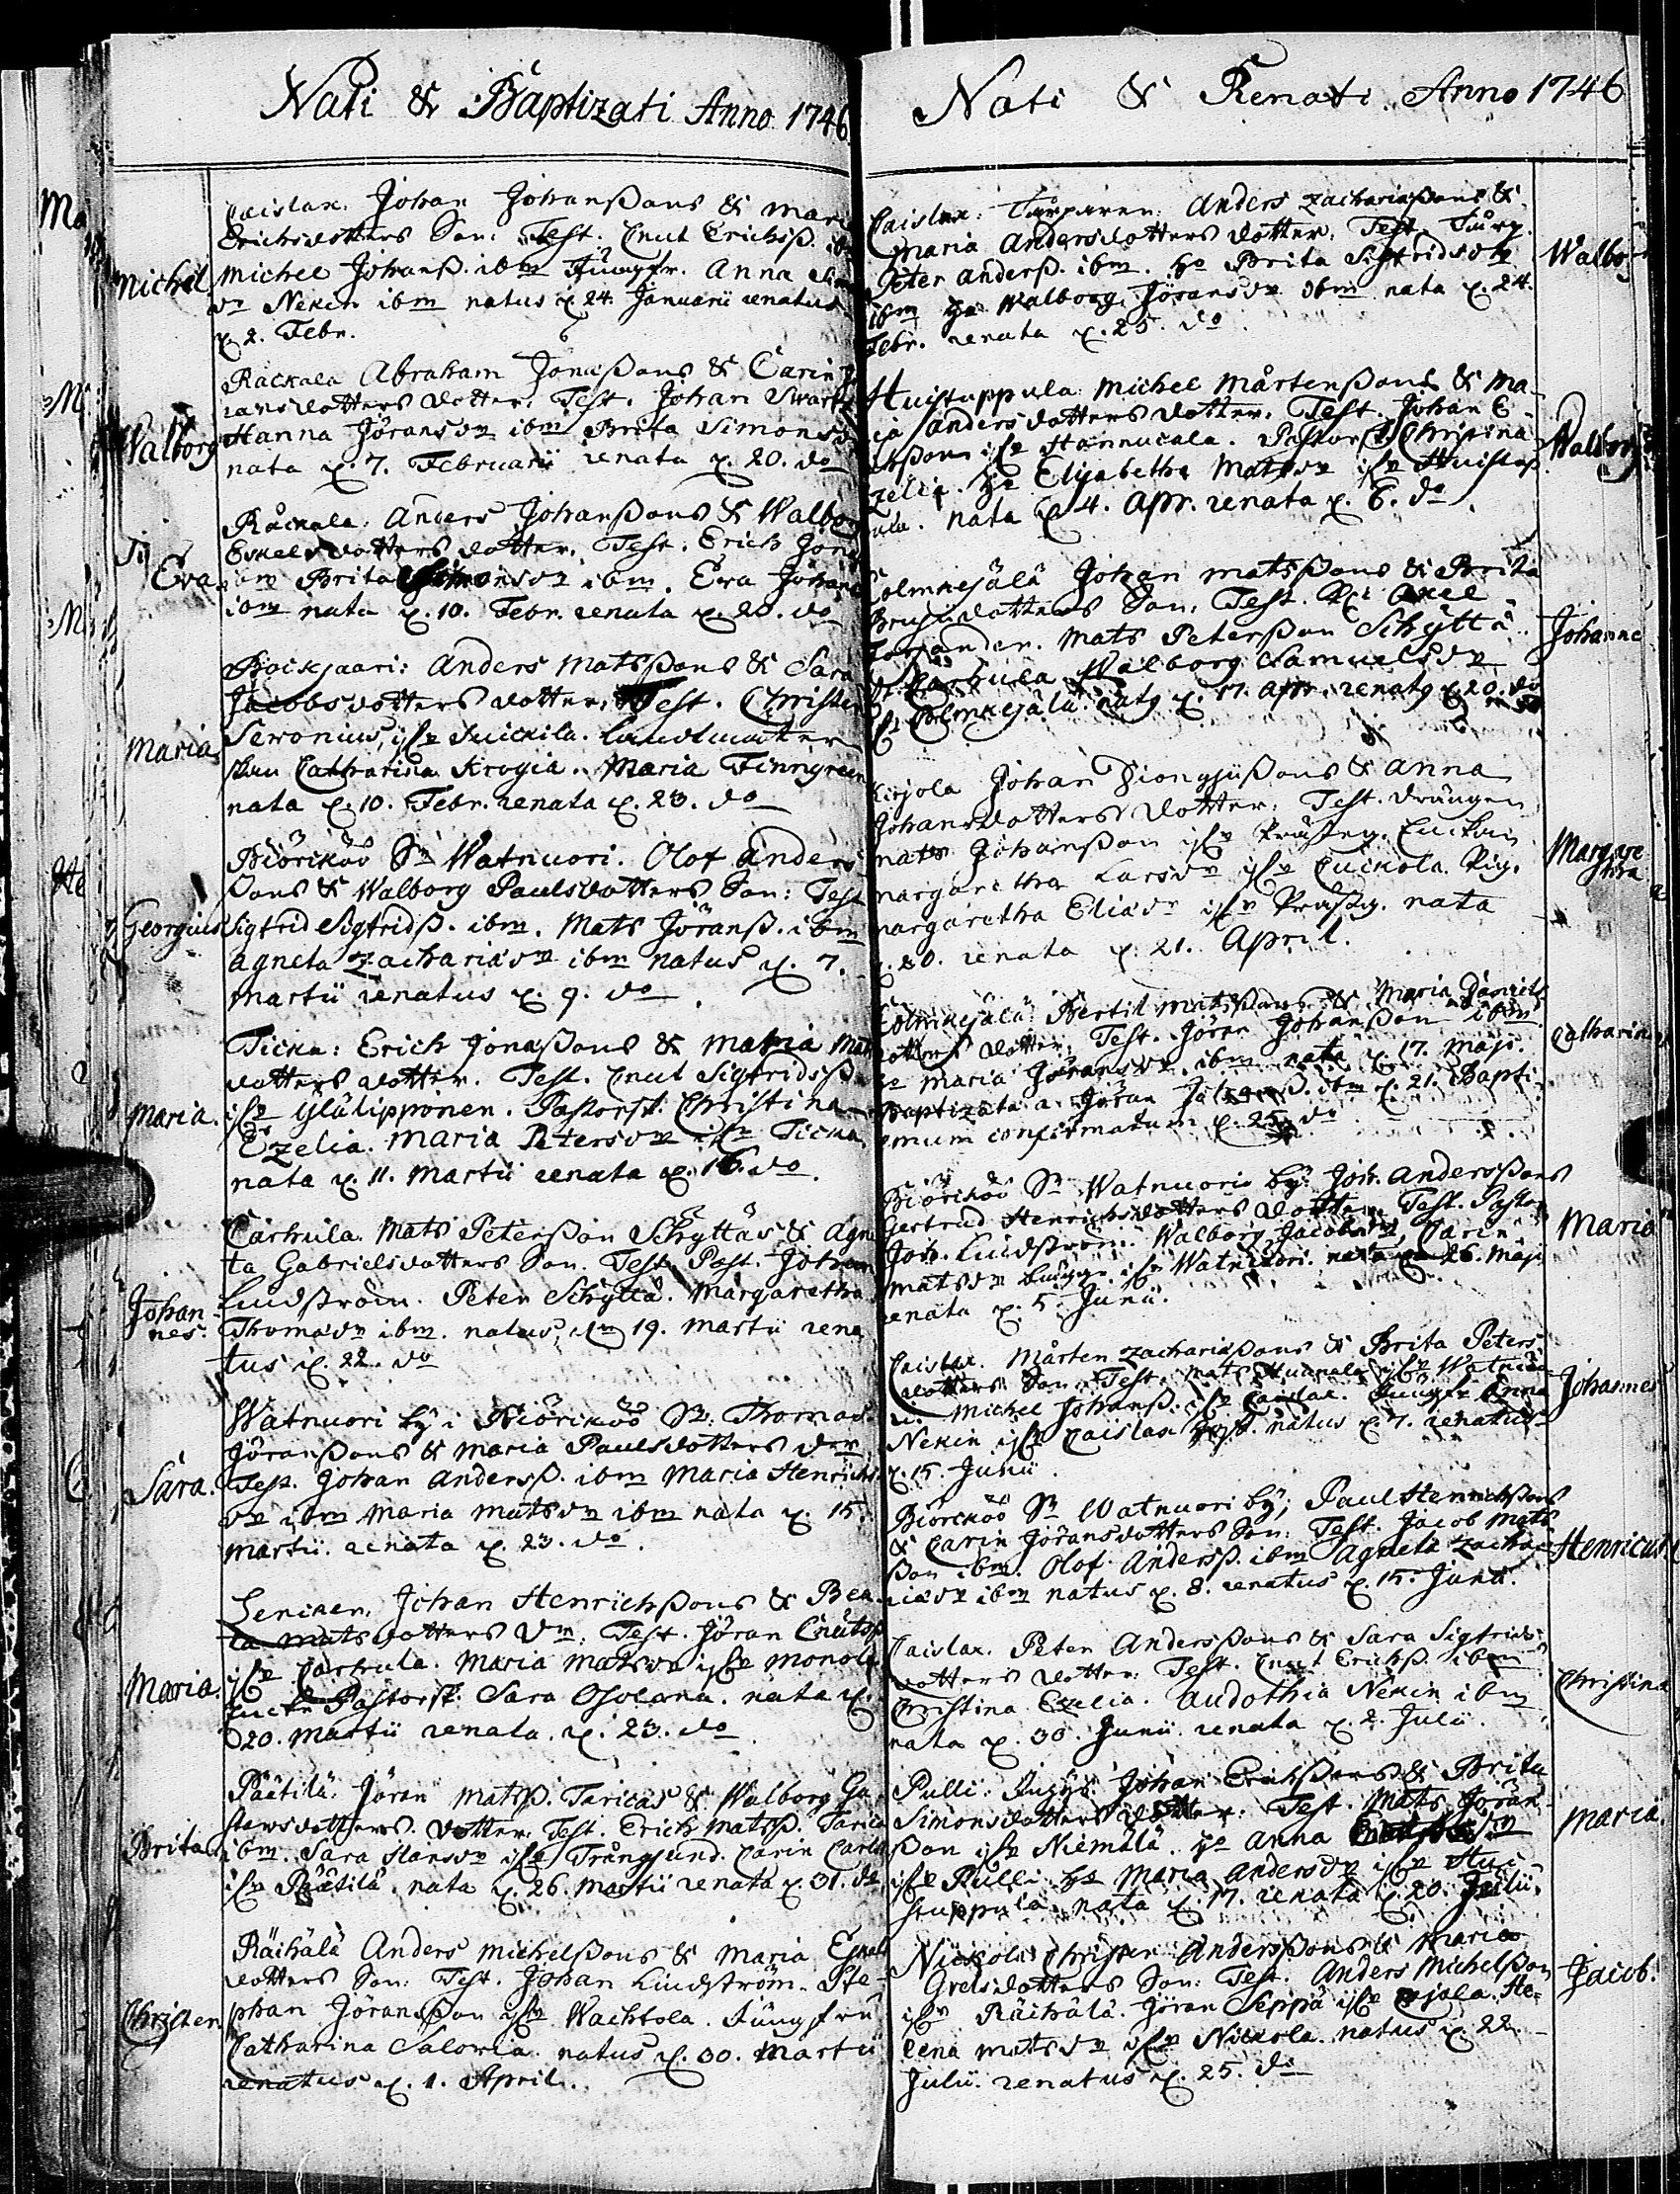 Nati & Baptizati Anno 1746
Michel
Caislax. Johan Johanßons & Mari
Erichsdotters Son: Test. Cnut Erichsß. ibm
Michel Johanß. ibm Jungfr. Anna
dr Nekin ibm natus d. 24. Januarii renatus
d. 2. Febr.
Walborg
Rackala Abraham Jonaßons & Carin Jö
ransdotters dotter. Test. Johan Swart
Hanna Jöransdr ibm Brita Simonsd
nata d. 7. Februarii renata d. 20. do
Eva
Rackala: Anders Johanßons & Walbor
Eskelsdotters dotter. Test. Erich Jon
ibm Brita Simonsdr ibm. Eva Johans
ibm nata d. 10. Febr. renata d. 20. do
Maria
Rockjaari: Anders Matsßons & Sara
Jacobsdotters dotter. Test. Christer
Seronius, ifr Suickila. Landtmäter
skan Catharina Krogia. Maria Finngreen
nata d. 10. Febr. renata d. 23. do
Georgius
Biörcköö Sn Watnuori. Olof Anders
ßons & Walborg Paulsdotters Son: Test
Sigfrid Sigfridß. ibm. Mats Jöranß. ibm
Agneta Zachariædr ibm natus d. 7.
Martii renatus d. 9. do
Maria.
Ticka: Erich Jonaßons & Maria Mats
dotters dotter. Test. Cnut Sigfridsß
ifr Yläläpponen. Pastorsk. Christina
Ezelia. Maria Petersdr ifr Ticka
nata d. 11. Martii renata d. 16. do
Johan-
nes.
Carhula. Mats Peterßon Schyttäs & Agne
ta Gabrielsdotters Son. Test. Past. Johan
Lindström. Peter Schyttä. Margaretha
Thomædr ibm. natus, dn 19. Martii rena
tus d. 22. do
Sara.
Watnuori by i Biörcköö Sn. Thomas
Jöranßons & Maria Paulsdotters dr
Test. Johan Andersß. ibm Maria Henrichs
dr ibm Maria Matsdr ibm nata d. 15.
Martii. renata d. 23. do.
Maria.
Leninen. Johan Henrichßons & Bea
ta Matsdotters dr. Test. Jöran Cnutsß
ifr Carhula. Maria Matsdr ifr Monola
Pastorsk. Sara Osolana. nata d.
20. Martii renata. d. 23. do
Brita
Päätilä: Jöran Matsß. Taricas & Walborg Gu
stavsdotters. dotter. Test. Erich Matsß. Tarica
ibm. Sara Hansdr ifr Trångsund. Carin Carls
ifr Päätilä. nata d. 26. Martii renata d. 31. do
Christer
Räihälä Anders Michelßons & Maria Eskels
dotters Son: Test. Johan Lindström. Ste-
phan Jöranßon ifr Wachtola. Jungfru
Catharina Saloria. natus d. 30. Martii
renatus d. 1. April.
Nati & Renati Anno 1746
Walbo
Caislax: Torparen. Anders Zachariæßons &
Maria Andersdotters dotter. Test. Torp.
Peter Anderß. ibm. H. Brita Sigfridsdr
ibm H. Walborg Jöransdr ibm nata d. 24.
Febr. renata d. 25. do
Walborg
Huistuppula Michel Mårtenßons & Ma-
ria Andersdotters dotter. Test. Johan E-
ifr Hannucala. Pastorsk. Christina
Ezelia. H. Elisabetha Matsdr ifr Huistup
pula. nata d 4. Apr. renata d. 6. do.
Johanne
Colmikejälä Johan Matsßons & Brita
dotters Son. Test. Axel
Mats Peterßon Schyttä
Carhula. Walborg Samuelsdr
fr Colmikejälä. natg d. 17. Apr. renatg d 20. do
Margare
tha
Kirjola Johan & Anna
Johansdotters dotter. Test. drängen
Mats Johanßon ifr Prästeg.
Margaretha Larsdr ifr Cuickola. Pig.
Margaretha Eliædr ifr Prästg. nata
d. 20. renata d. 21. April.
Catharina
Colmikejälä Bertil Matsßons & Maria Daniels
dotters dotter. Test. Jöran Johanßon ibm
H. Maria Jöransdr ibm nata d. 17. Maji.
Baptizata a Jöran ibm d. 21. Bapti-
smum confirmatum d. 25. do
Maria
Biörcköö Sn Watnuori by. Joh. Andersßons
Gertrud Henrichsdotters dotter. Test. Pastor
Joh. Lindström. Walborg Jacobsdr, Carin
Matsdr ifr Watnuori. nata d 26. Maji
renata d. 5. Junii.
Johannes
Caislax. Mårten Zachariæßons & Brita Peters
dotters Son. Test. Mats ifr Watnuo
ri. Michel Johanß. ifr Caislax. Jungfr Anna
Nekin ifr Caislax natus d. 7. renatus
d. 15. Junii
Henricus
Biörcköö Sn Watnuori by; Paul Henrichßons
& Carin Jöransdotters Son: Test. Jacob Mats
ßon ibm. Olof Andersß. ibm Agneta Zacha-
riædr ibm natus d. 8. renatus d. 15. Junii.
Christina
Caislax. Peter Andersßons & Sara Sigfrids
dotters dotter: Test. Cnut Erichsß. ibm
Christina Ezelia. Audothia Nekin ibm
nata d. 30. Junii. renata d. 2. Julii.
Maria.
Pulli: Johan Erichßons & Brita
Simonsdotters dotter. Test. Mats Jöran
ßon ifr Niemälä. H. Anna
ifr Pulli H. Maria Andersdr ifr Hui-
stuppula. nata d. 17. renata d. 20. Julii.
Jacob.
Nickola Christer Andersßons & Maria
Grelsdotters Son: Test. Anders Michelßon
ifr Räihälä. Jöran Seppä ifr He-
lena Matsdr ifr Nickola. natus d. 22.
Julii. renatus d. 25. do